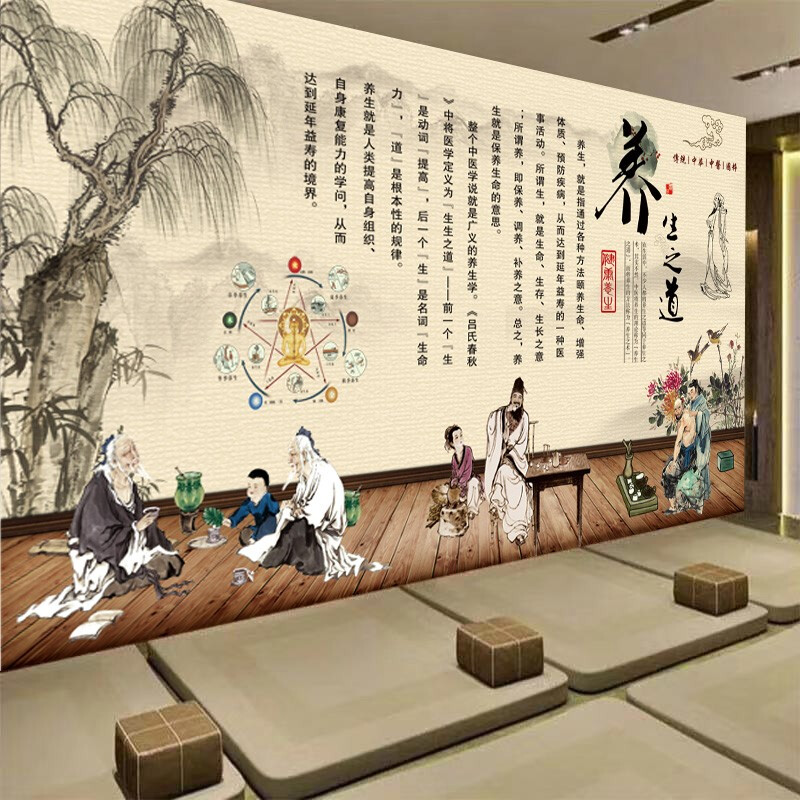 传统|中华|中医|国粹
养
生之道
健康养生
养生，就是指通过各种方法颐养生命、增强
体质、预防疾病，从而达到延年益寿的一种医
事活动。所谓生，就是生命、生存、生长之意
；所谓养，即保养、调养、补养之意。总之，养
生就是保养生命的意思。
整个中医学说就是广义的养生学。《吕氏春秋
》中将医学定义为『生生之道』——前一个『生
』是动词『提高』，后一个『生』是名词『生命
力』，『道』是根本性的规律。
养生就是人类提高自身组织、
自身康复能力的学问，从而
达到延年益寿的境界。